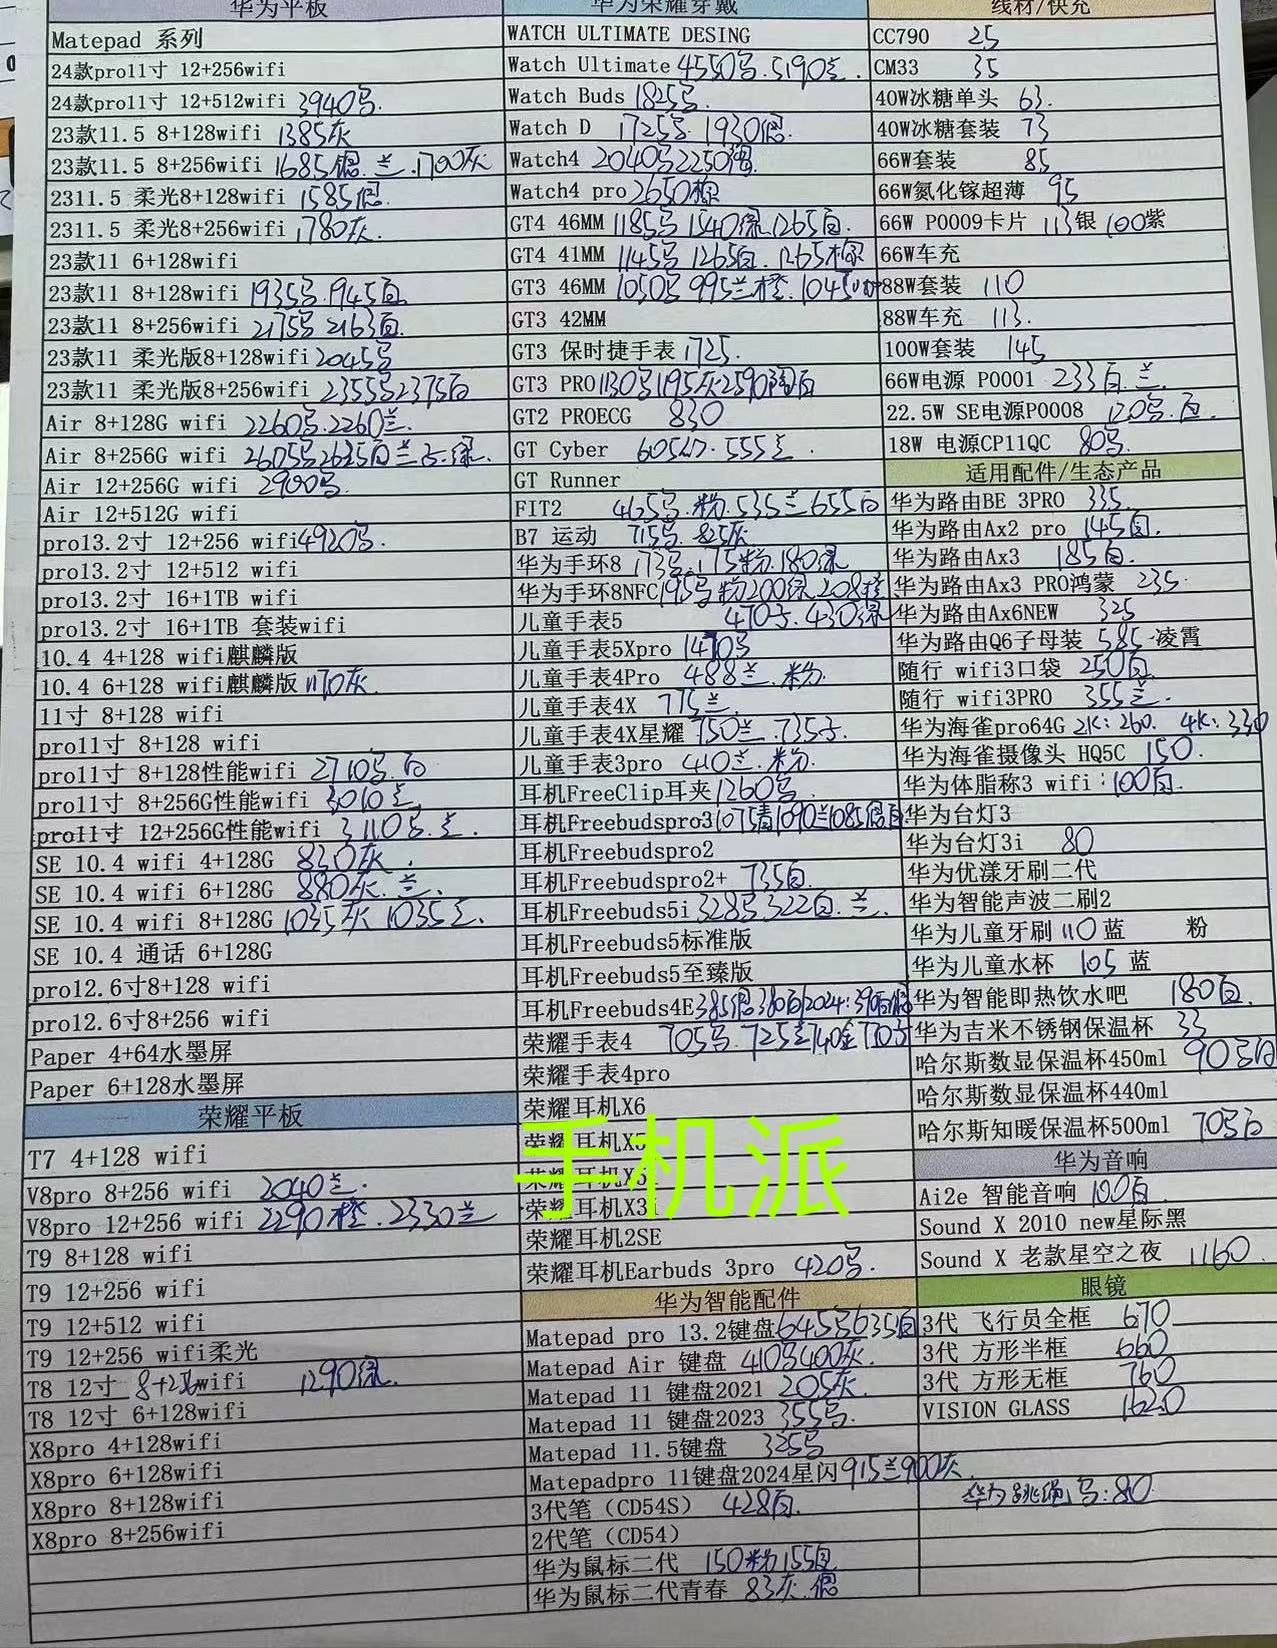 华为平板
Matepad 系列
24款pro11寸 12+256wifi
24款pro11寸 12+512wifi 3940
23款11.5 8+128wifi 1385灰
23款11.5 8+256wifi 1685银.兰.1700灰
2311.5 柔光8+128wifi 1585银
2311.5 柔光8+256wifi 1780灰.
23款11 6+128wifi
23款11 8+128wifi 1935 1945白
23款11 8+256wifi 2175 2163白.
23款11 柔光版8+128wifi 2045
23款11 柔光版8+256wifi 2355 2375白
Air 8+128G wifi 2260 2260兰.
Air 8+256G wifi 2605 2625白 兰
Air 12+256G wifi 2900
Air 12+512G wifi
pro13.2寸 12+256 wifi 4920
pro13.2寸 12+512 wifi
pro13.2寸 16+1TB wifi
pro13.2寸 16+1TB 套装wifi
10.4 4+128 wifi麒麟版
10.4 6+128 wifi麒麟版 1170灰.
11寸 8+128 wifi
pro11寸 8+128 wifi
pro11寸 8+128性能wifi 2710 白
pro11寸 8+256G性能wifi 3010兰
pro11寸 12+256G性能wifi 3110 兰.
SE 10.4 wifi 4+128G 830灰.
SE 10.4 wifi 6+128G 880灰.兰.
SE 10.4 wifi 8+128G 1035灰 1035兰.
SE 10.4 通话 6+128G
pro12.6寸8+128 wifi
pro12.6寸8+256 wifi
Paper 4+64水墨屏
Paper 6+128水墨屏
荣耀平板
T7 4+128 wifi
V8pro 8+256 wifi 2040兰.
V8pro 12+256 wifi 2290橙.2330兰
T9 8+128 wifi
T9 12+256 wifi
T9 12+512 wifi
T9 12+256 wifi柔光
T8 12寸 8+256wifi 1290绿.
T8 12寸 6+128wifi
X8pro 4+128wifi
X8pro 6+128wifi
X8pro 8+128wifi
X8pro 8+256wifi
华为荣耀穿戴
WATCH ULTIMATE DESING
Watch Ultimate 4550 5190兰.
Watch Buds 1825
Watch D 1725 1930银.
Watch4 2040 2250
Watch4 pro 2650棕
GT4 46MM 1185 1540绿 1265白
GT4 41MM 1145 1265白. 1265棕
GT3 46MM 1050 995兰橙.1045
GT3 42MM
GT3 保时捷手表 1725.
GT3 PRO 1130 1195灰 2590陶白
GT2 PROECG 830
GT Cyber 605 555兰
GT Runner
FIT2 465 粉.535兰 655白
B7 运动 715 825灰
华为手环8 173 175粉.180绿
华为手环8NFC 195 粉200绿 208橙
儿童手表5 470 430绿
儿童手表5Xpro 1470
儿童手表4Pro 488兰.粉.
儿童手表4X 775兰
儿童手表4X星耀 750兰.735
儿童手表3pro 410兰.粉.
耳机FreeClip耳夹 1260
耳机Freebudspro3 1075青1090兰1085银白
耳机Freebudspro2
耳机Freebudspro2+ 735白.
耳机Freebuds5i 328 322白.兰.
耳机Freebuds5标准版
耳机Freebuds5至臻版
耳机Freebuds4E 385银380白2024:390
荣耀手表4 705 725兰740金
荣耀手表4pro
荣耀耳机X6
荣耀耳机X5
荣耀耳机X3
荣耀耳机X3i
手机派
荣耀耳机2SE
荣耀耳机Earbuds 3pro 420
华为智能配件
Matepad pro 13.2键盘 645 635白
Matepad Air 键盘 410 400灰.
Matepad 11 键盘2021 205灰.
Matepad 11 键盘2023 355
Matepad 11.5键盘 325
Matepadpro 11键盘2024星闪 915兰900灰.
3代笔（CD54S） 428白.
2代笔（CD54）
华为鼠标二代 150粉155白
华为鼠标二代青春 83灰.银
线材/快充
CC790 25
CM33 35
40W冰糖单头 63.
40W冰糖套装 73
66W套装 85
66W氮化镓超薄 95
66W P0009卡片 113银 100紫
66W车充
88W套装 110
88W车充 113.
100W套装 145
66W电源 P0001 233白.兰.
22.5W SE电源P0008 120 白.
18W 电源CP11QC 80
适用配件/生态产品
华为路由BE 3PRO 335.
华为路由Ax2 pro 145白.
华为路由Ax3 185白.
华为路由Ax3 PRO鸿蒙 235
华为路由Ax6NEW 325
华为路由Q6子母装 585·凌霄
随行 wifi3口袋 250白.
随行 wifi3PRO 355兰.
华为海雀pro64G 2K:260. 4K:330
华为海雀摄像头 HQ5C 150.
华为体脂称3 wifi:100白.
华为台灯3
华为台灯3i 80
华为优漾牙刷二代
华为智能声波二刷2
华为儿童牙刷 110蓝 粉
华为儿童水杯 105 蓝
华为智能即热饮水吧 180白.
华为吉米不锈钢保温杯 33
哈尔斯数显保温杯450ml 90 白
哈尔斯数显保温杯440ml
哈尔斯知暖保温杯500ml 70 白
华为音响
Ai2e 智能音响 100白.
Sound X 2010 new星际黑
Sound X 老款星空之夜 1160.
眼镜
3代 飞行员全框 670
3代 方形半框 660
3代 方形无框 760
VISION GLASS 1620
华为跳绳 80